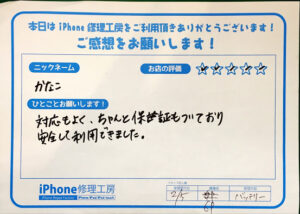 本日は iPhone 修理工房をご利用頂きありがとうございます!
ご感想をお願いします!
ニックネーム
お店の評価
かなこ
ひとことお願いします!
対応もよく、ちゃんと保証証もついており
安心して利用できました。
iPhone修理工房
iPhone Repair Factory
iPhone・iPad・iPod touch
2/5
バッテリー